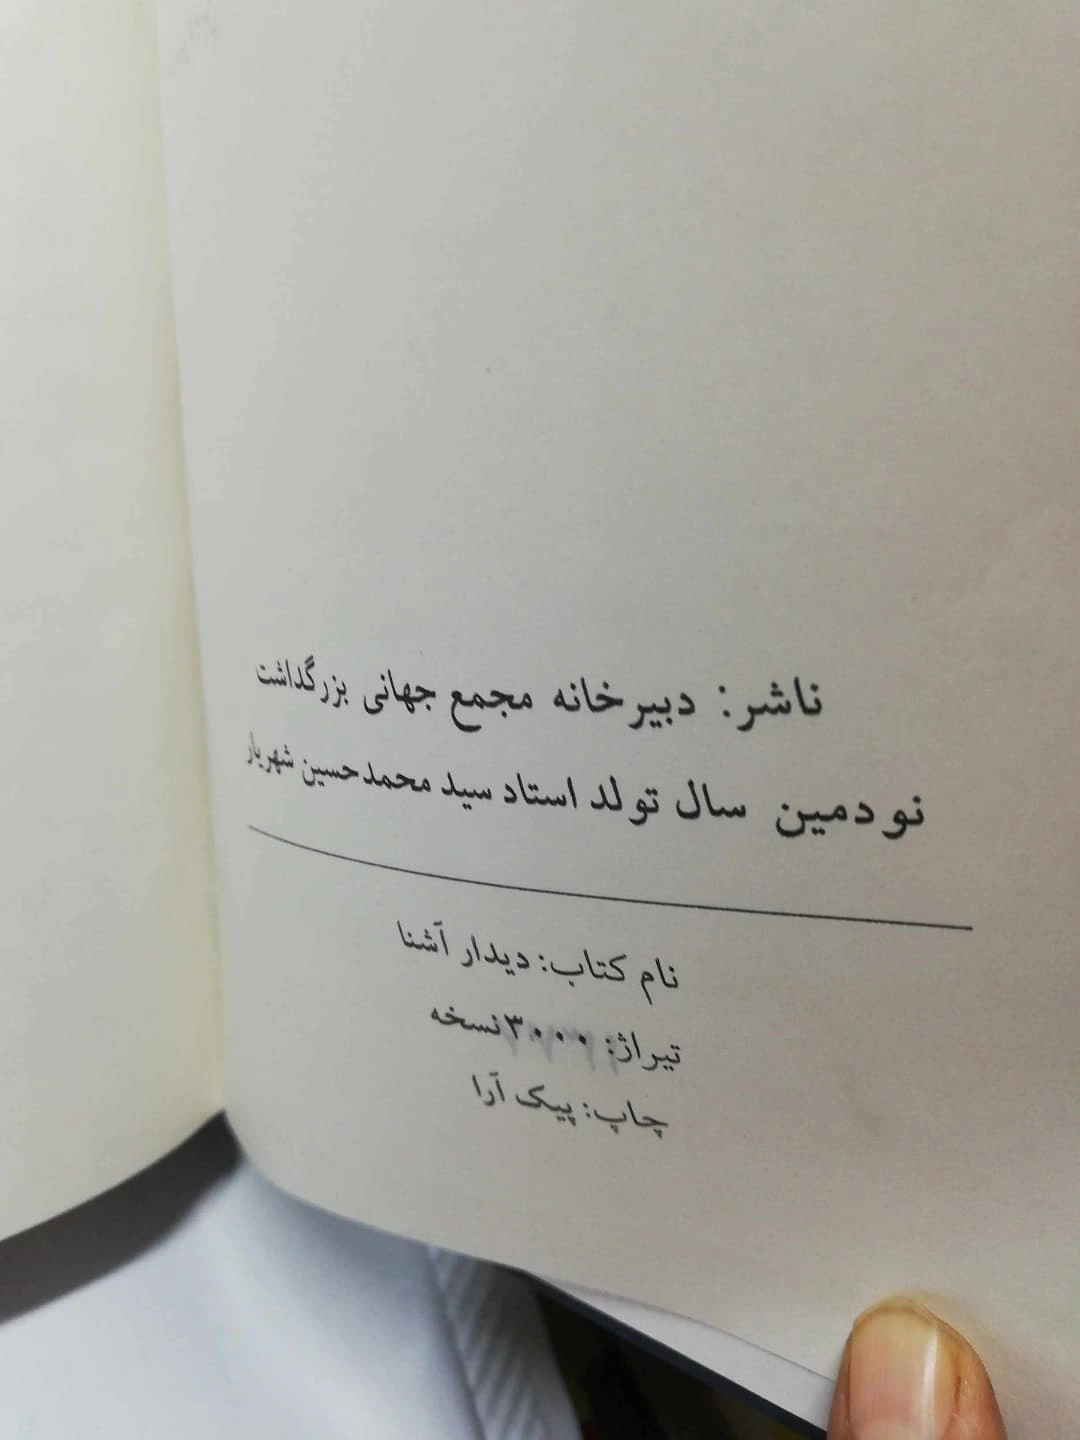 ناشر: دبیرخانه مجمع جهانی بزرگداشت
نودمین سال تولد استاد سید محمدحسین شهریار
نام کتاب: دیدار آشنا
تیراژ: ۳۰۰۰ نسخه
چاپ: پیک آرا